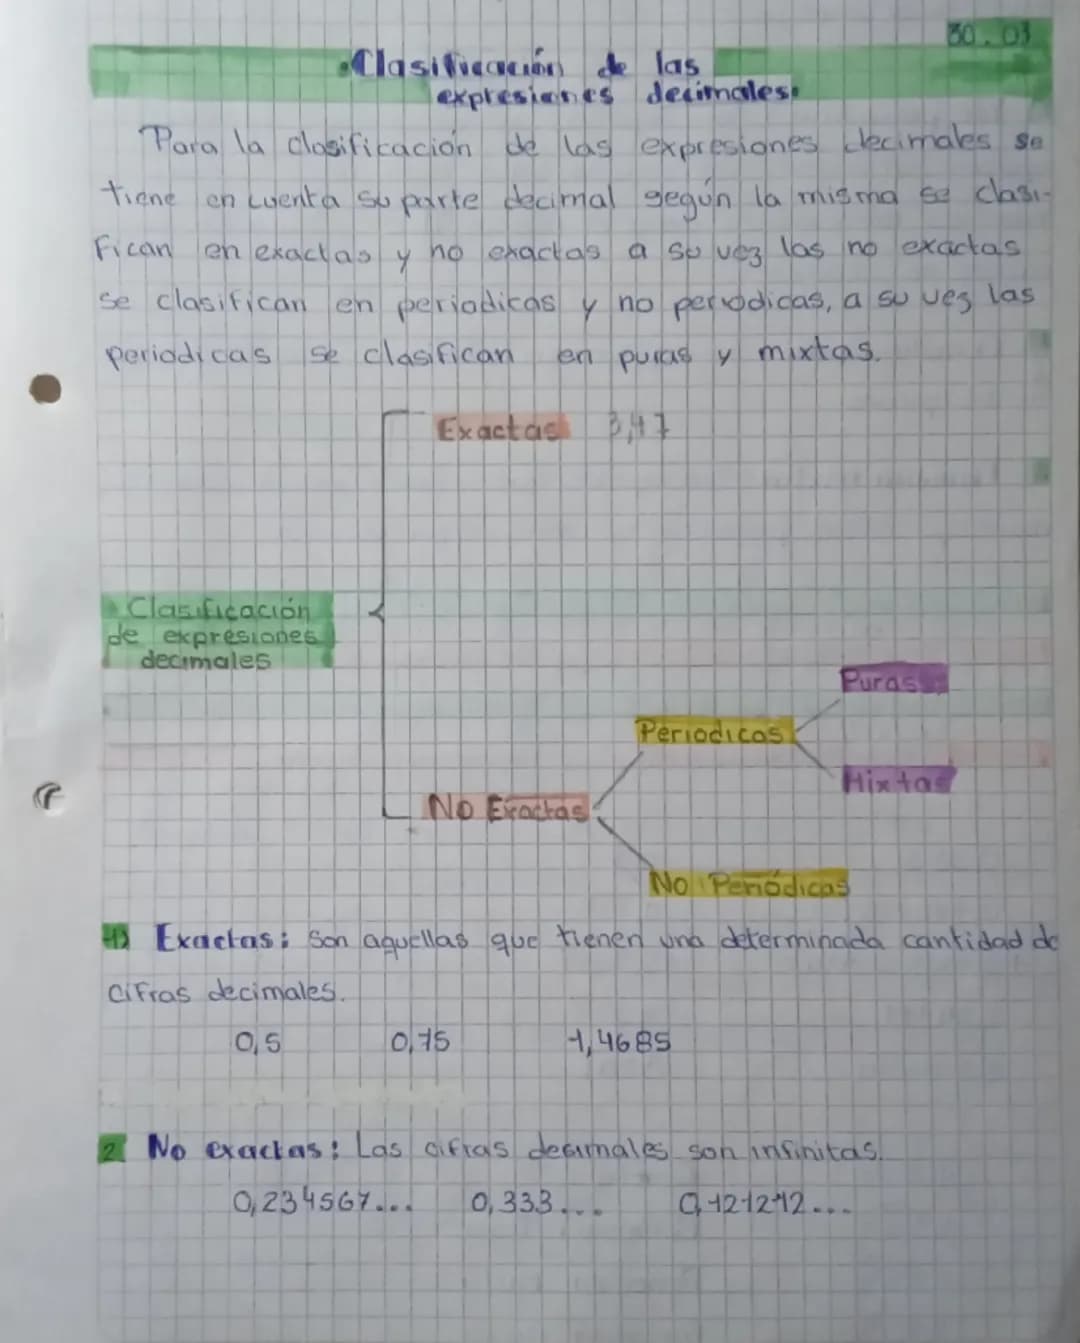 30.03
Clasificación de las
expresiones decimales.
Para la clasificación de las expresiones decimales se
tiene en cuenta su parte decimal según la misma se clasi-
fican en exactas y no exactas a su vez las no exactas
se clasifican en periodicas y no periódicas, a su ves las
periodicas se clasifican en puras y mixtas.
Exactas 3,47
Clasificación
de expresiones
decimales
Puras
Periodicas
Mixtas
No Exactas
No Periódicas
1) Exactas: Son aquellas que tienen una determinada cantidad de
cifras decimales.
0,5 0,75 1,4685
2 No exactas: Las cifras decimales son infinitas.
0,234567... 0,333... 0,121212...